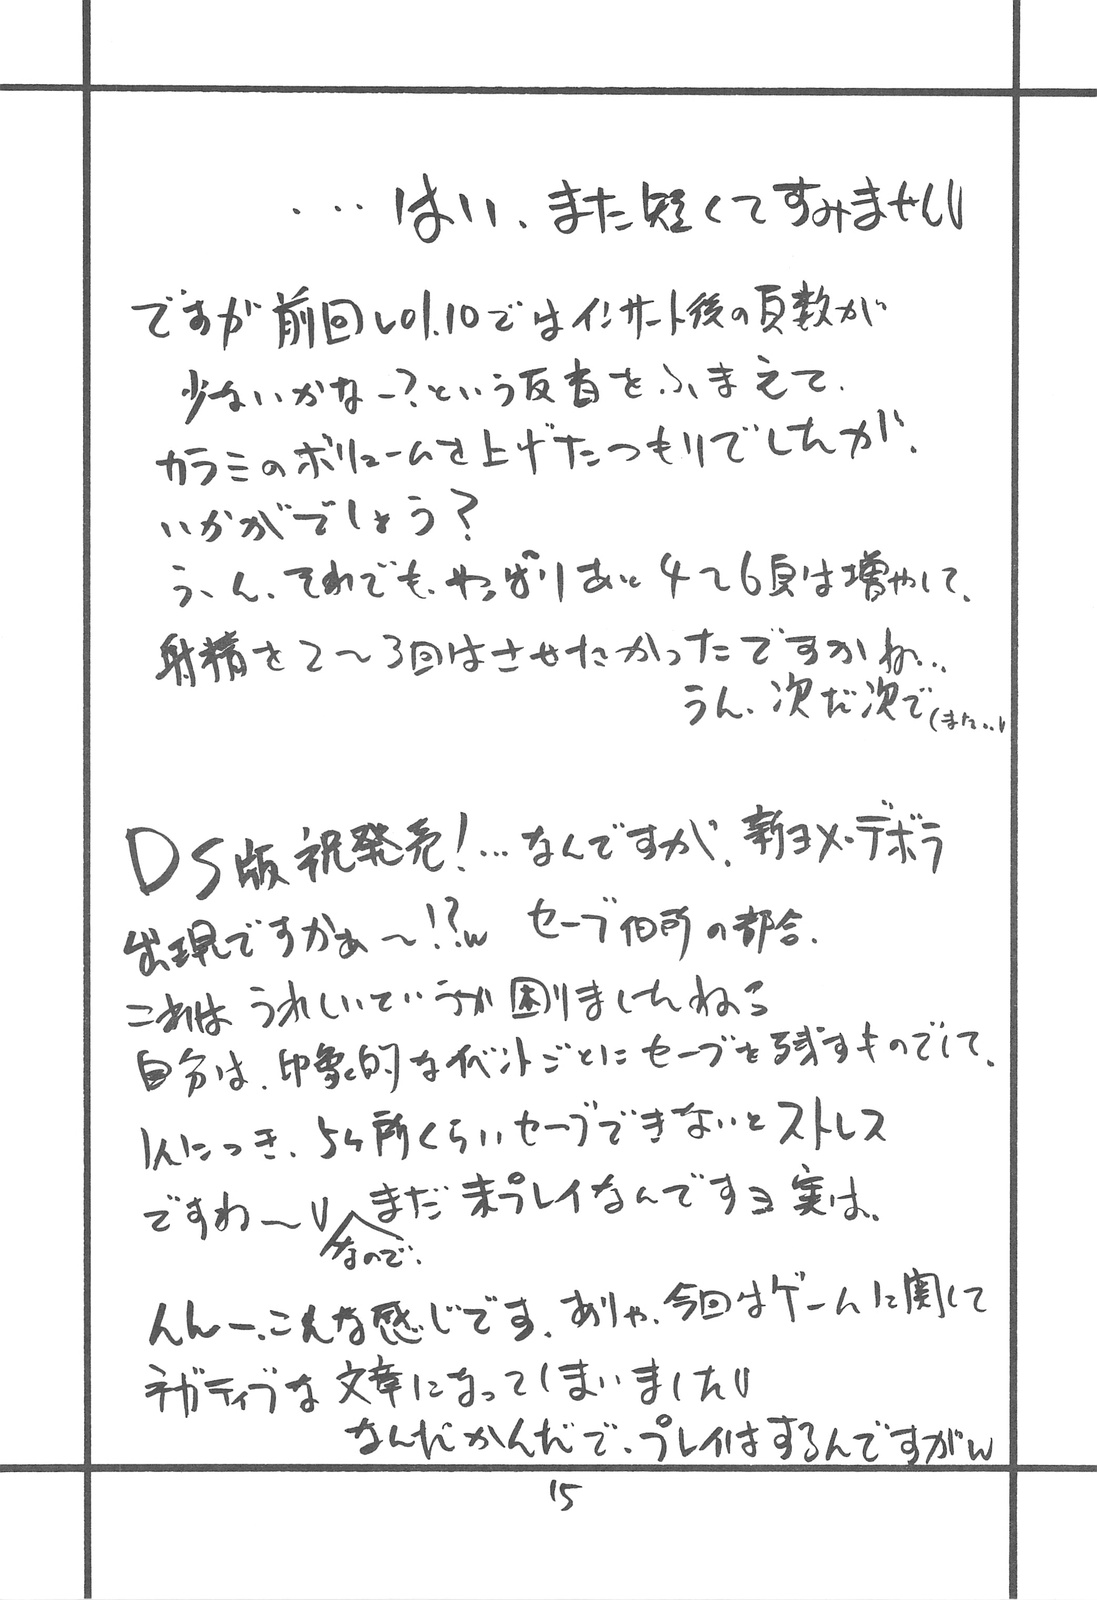 …はい、また短くてすみません
ですが前回vol.10ではインサート後の頁数が
少ないかなー？という反省をふまえて、
カラミのボリュームを上げたつもりでしたが、
いかがでしょう？
う、ん、それでも、やっぱりあと4〜6頁は増やして、
射精を2〜3回はさせたかったですかね…
うん、次だ次で(また…
DS版祝発売！…なんですが、新ヨメ・デボラ
出現ですかぁ〜!?w セーブ個所の都合、
これは うれしいていうか 困りましたねヨ
自分は、印象的なイベントごとにセーブを残すものでして、
1人につき、5ヶ所くらいセーブできないとストレス
ですわ〜 まだ 未プレイなんですヨ 実は。
なので、
んんー、こんな感じです、ありゃ、今回はゲームに関して
ネガティブな 文章になってしまいました
なんだかんだで、プレイはするんですがw
15